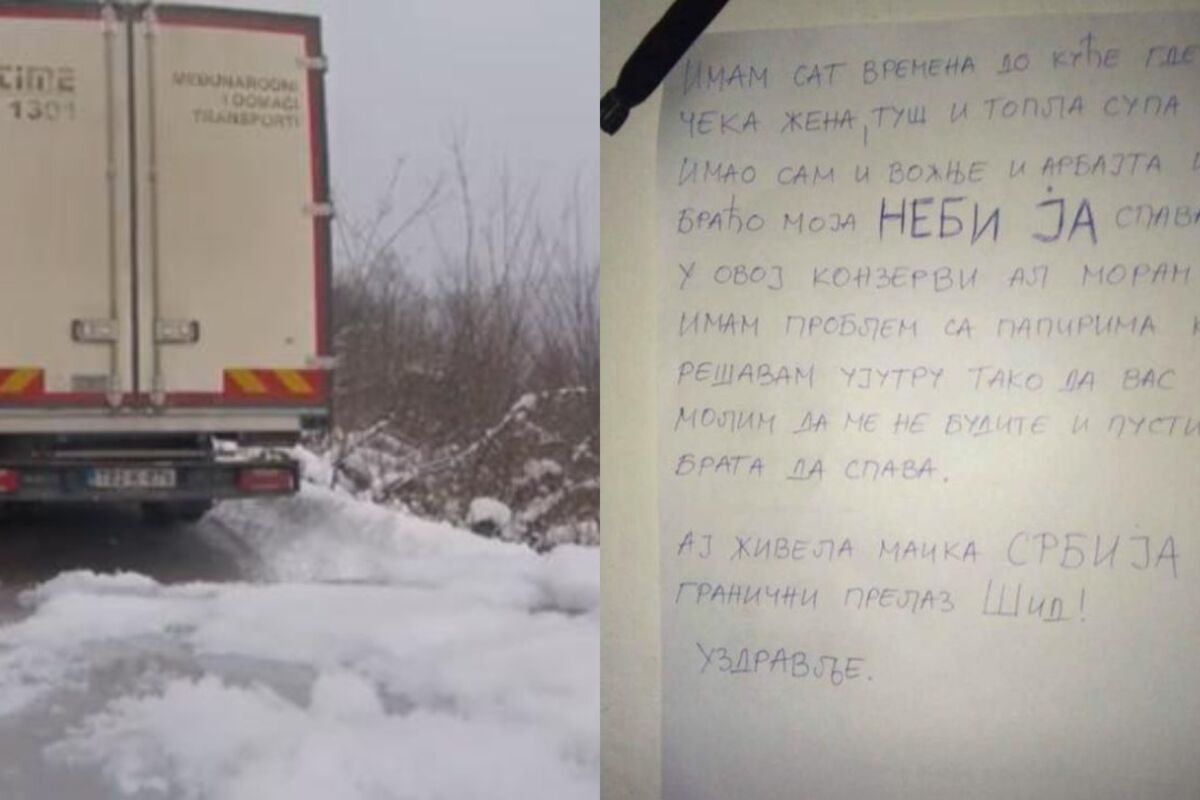 TIME
1301
MEĐUNARODNI
I DOMAĆI
TRANSPORTI
ИМАМ САТ ВРЕМЕНА ДО КУЋЕ ГДЕ
ЧЕКА ЖЕНА, ТУШ И ТОПЛА СУПА
ИМАО САМ И ВОЖЊЕ И АРБАЈТА
БРАЋО МОЈА НЕБИ ЈА СПАВА
У ОВОЈ КОНЗЕРВИ АЛ МОРАМ
ИМАМ ПРОБЛЕМ СА ПАПИРИМА
РЕШАВАМ УЈУТРУ ТАКО ДА ВАС
МОЛИМ ДА МЕ НЕ БУДИТЕ И ПУСТИ
БРАТА ДА СПАВА.
АЈ ЖИВЕЛА МАЈКА СРБИЈА
ГРАНИЧНИ ПРЕЛАЗ ШИД!
УЗДРАВЉЕ.